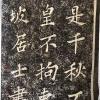 是千秋不
皇不拘書
坡居士書